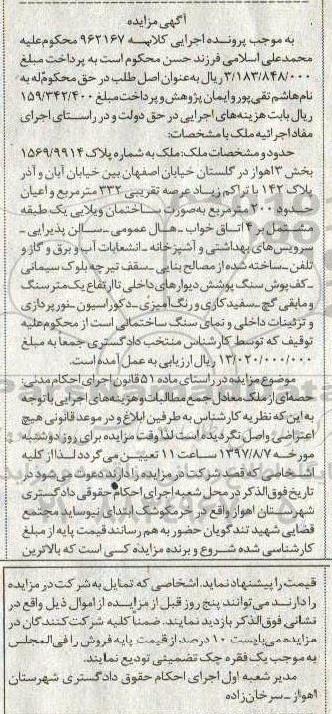 آگهی مزایده
به موجب پرونده اجرایی کلاسه ۹۶۲۱۶۷ محکوم‌علیه
محمدعلی اسلامی فرزند حسن محکوم است به پرداخت مبلغ
۳/۱۸۳/۸۴۸/۰۰۰ ریال به‌عنوان اصل طلب در حق محکوم‌له به
نام هاشم تقی‌پور و ایمان پژوهش و پرداخت مبلغ ۱۵۹/۳۴۲/۴۰۰
ریال بابت هزینه‌های اجرایی در حق دولت و در راستای اجرای
مفاد اجرائیه ملک با مشخصات:
حدود و مشخصات ملک: ملک به شماره پلاک ۱۵۶۹/۹۹۱۴
بخش ۳ اهواز در گلستان خیابان اصفهان بین خیابان آبان و آذر
پلاک ۱۴۲ با تراکم زیاد عرصه تقریبی ۳۳۲ مترمربع و اعیان
حدود ۲۰۰ مترمربع به‌صورت ساختمان ویلایی یک طبقه
مشتمل بر ۴ اتاق خواب ـ هال عمومی ـ سالن پذیرایی ـ
سرویس‌های بهداشتی و آشپزخانه ـ انشعابات آب و برق و گاز و
تلفن ـ ساخته شده از مصالح بنایی ـ سقف تیرچه بلوک سیمانی
ـ کف‌پوش سنگ پوشش دیوارهای داخلی تا ارتفاع یک متر سنگ
و مابقی گچ ـ سفیدکاری و رنگ‌آمیزی ـ دکوراسیون ـ نورپردازی
و تزئینات داخلی و نمای سنگ ساختمانی است از محکوم‌علیه
توقیف که توسط کارشناس منتخب دادگستری جمعاً به مبلغ
۱۳/۰۲۰/۰۰۰/۰۰۰ ریال ارزیابی به عمل آمده است.
موضوع مزایده در راستای ماده ۵۱ قانون اجرای احکام مدنی:
حصه‌ای از ملک معادل جمع مطالبات و هزینه‌های اجرایی با توجه
به این‌که نظریه کارشناس به طرفین ابلاغ و در موعد قانونی هیچ
اعتراضی واصل نگردیده است لذا وقت مزایده برای روز دوشنبه
مورخه ۱۳۹۷/۸/۷ ساعت ۱۱ تعیین می‌گردد لذا از کلیه
اشخاصی که قصد شرکت در مزایده را دارند دعوت می‌شود در
تاریخ فوق‌الذکر در محل شعبه اجرای احکام حقوقی دادگستری
شهرستان اهواز واقع در خرمکوشک ابتدای نیوساید مجتمع
قضایی شهید تندگویان حضور به هم رسانند قیمت پایه از مبلغ
کارشناسی شده شروع و برنده مزایده کسی است که بالاترین
قیمت را پیشنهاد نماید. اشخاصی که تمایل به شرکت در مزایده
را دارند می‌توانند پنج روز قبل از مزایده از اموال ذیل واقع در
نشانی فوق‌الذکر بازدید نمایند. ضمناً کلیه شرکت‌کنندگان در
مزایده می‌بایست ۱۰ درصد از قیمت پایه فروش را فی‌المجلس
به موجب یک فقره چک تضمینی تودیع نمایند.
مدیر شعبه اول اجرای احکام حقوق دادگستری شهرستان
اهواز ـ سرخان‌زاده